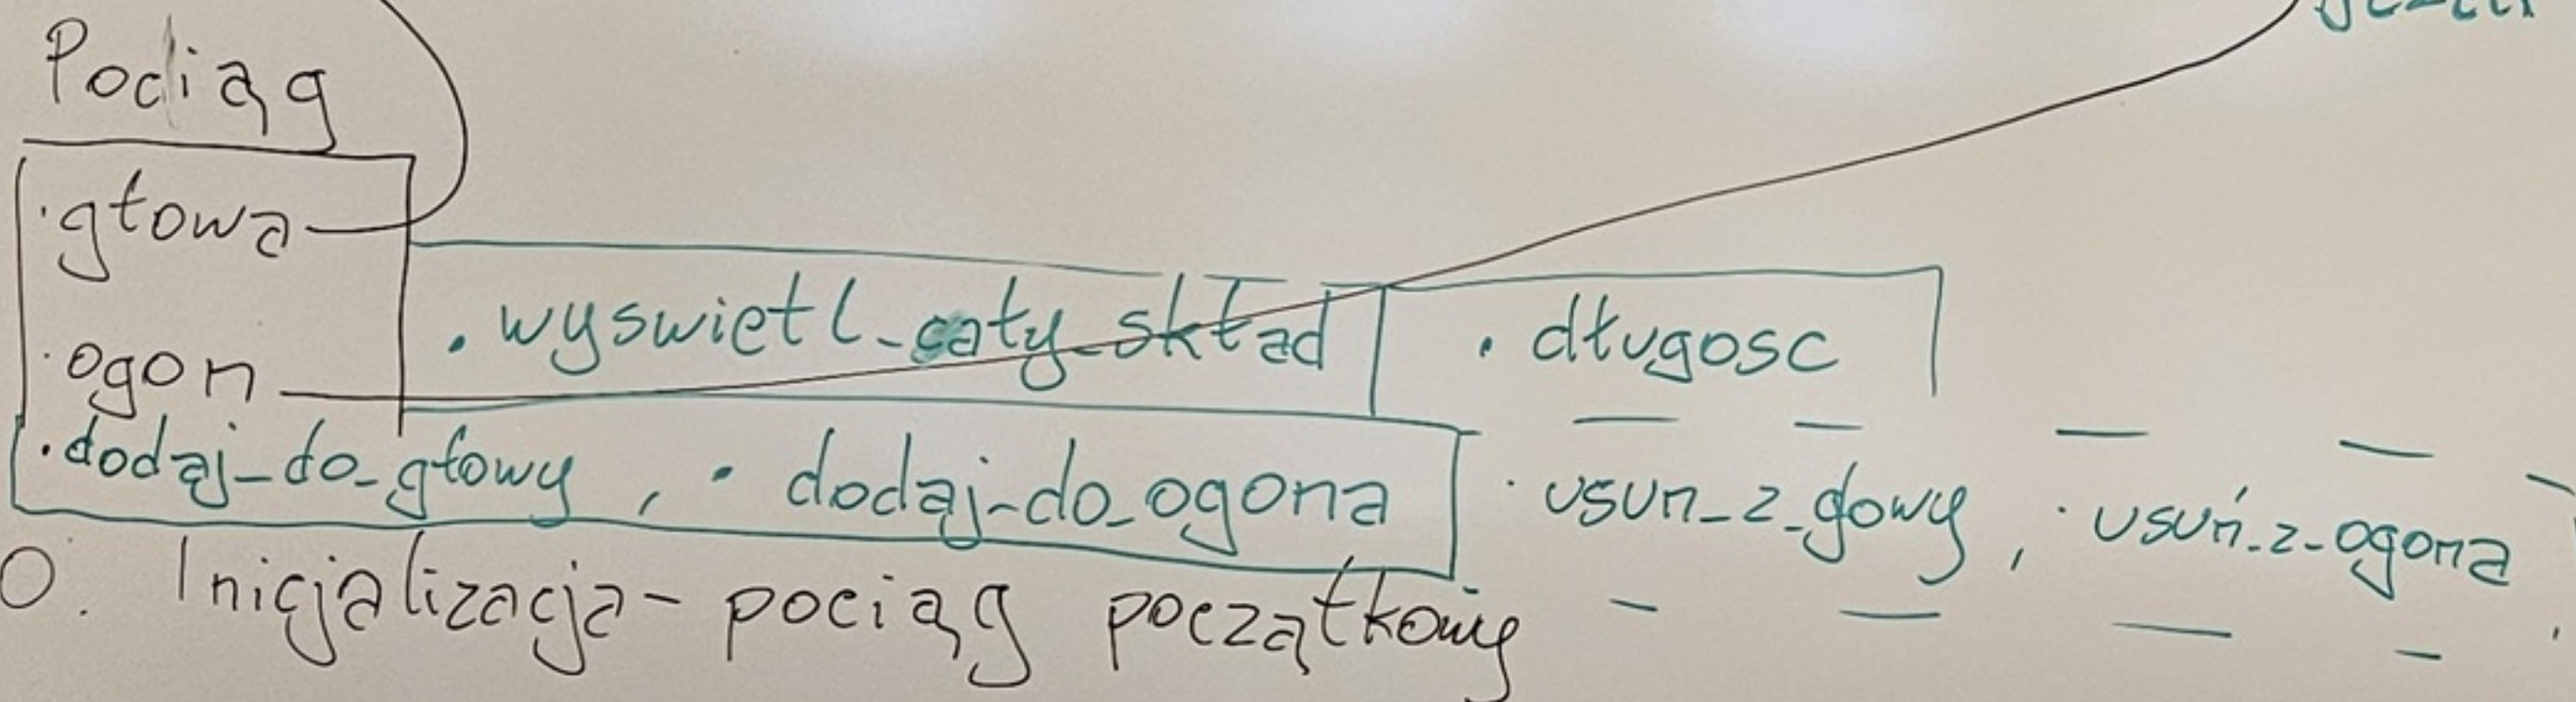 Pociąg
·głowa
·ogon
·wyswietl_cały_skład
·długosc
·dodaj_do_głowy , ·dodaj_do_ogona
·usun_z_głowy , ·usuń_z_ogona
0. Inicjalizacja - pociąg początkowy